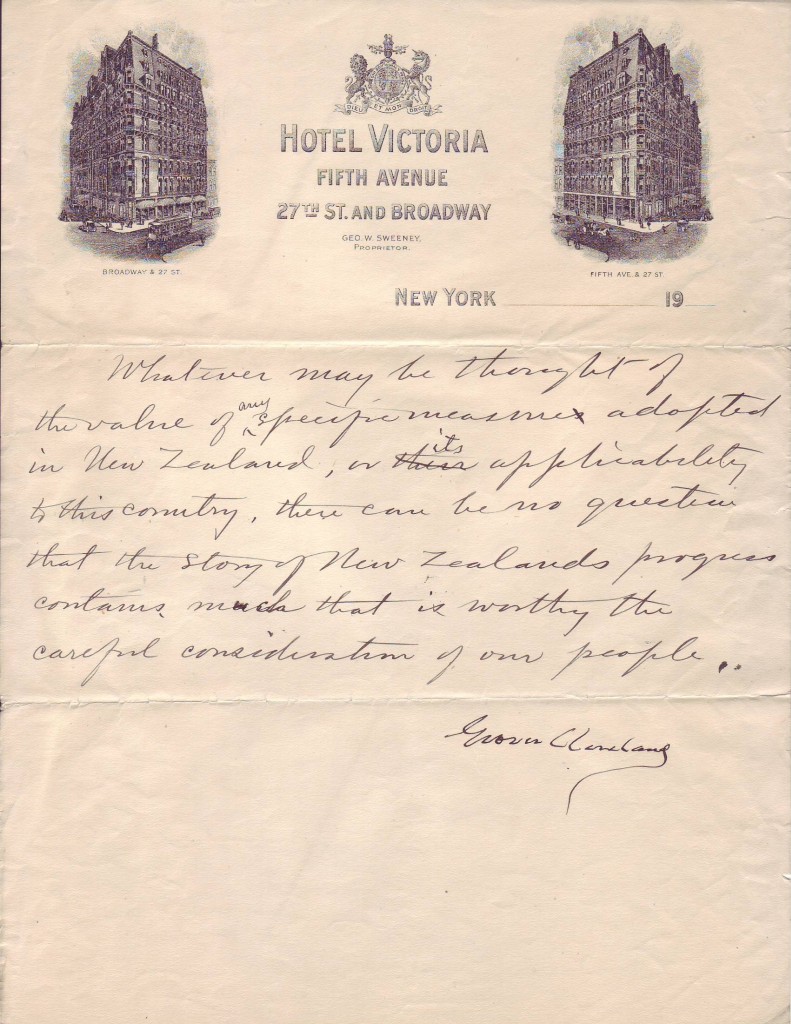 DIEU ET MON DROIT
HOTEL VICTORIA
FIFTH AVENUE
27TH ST. AND BROADWAY
GEO. W. SWEENEY,
PROPRIETOR.
BROADWAY & 27 ST.
FIFTH AVE. & 27 ST.
NEW YORK 19
Whatever may be thought of
the value of any specific measure adopted
in New Zealand, or their its applicability
to this country, there can be no question
that the story of New Zealands progress
contains much that is worthy the
careful consideration of our people..
Grover Cleveland